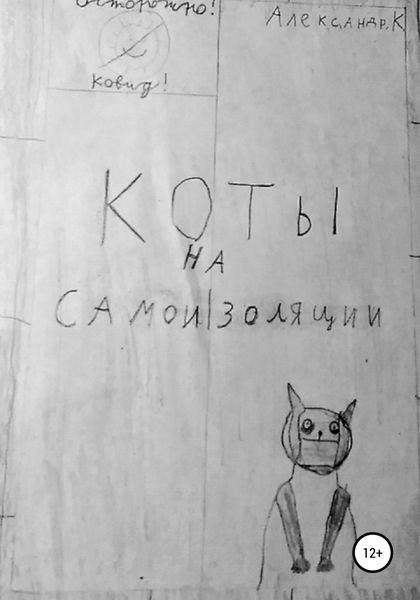 Осторожно!
Ковид!
Александр.К
КОТЫ
НА
САМОИЗОЛЯЦИИ
12+